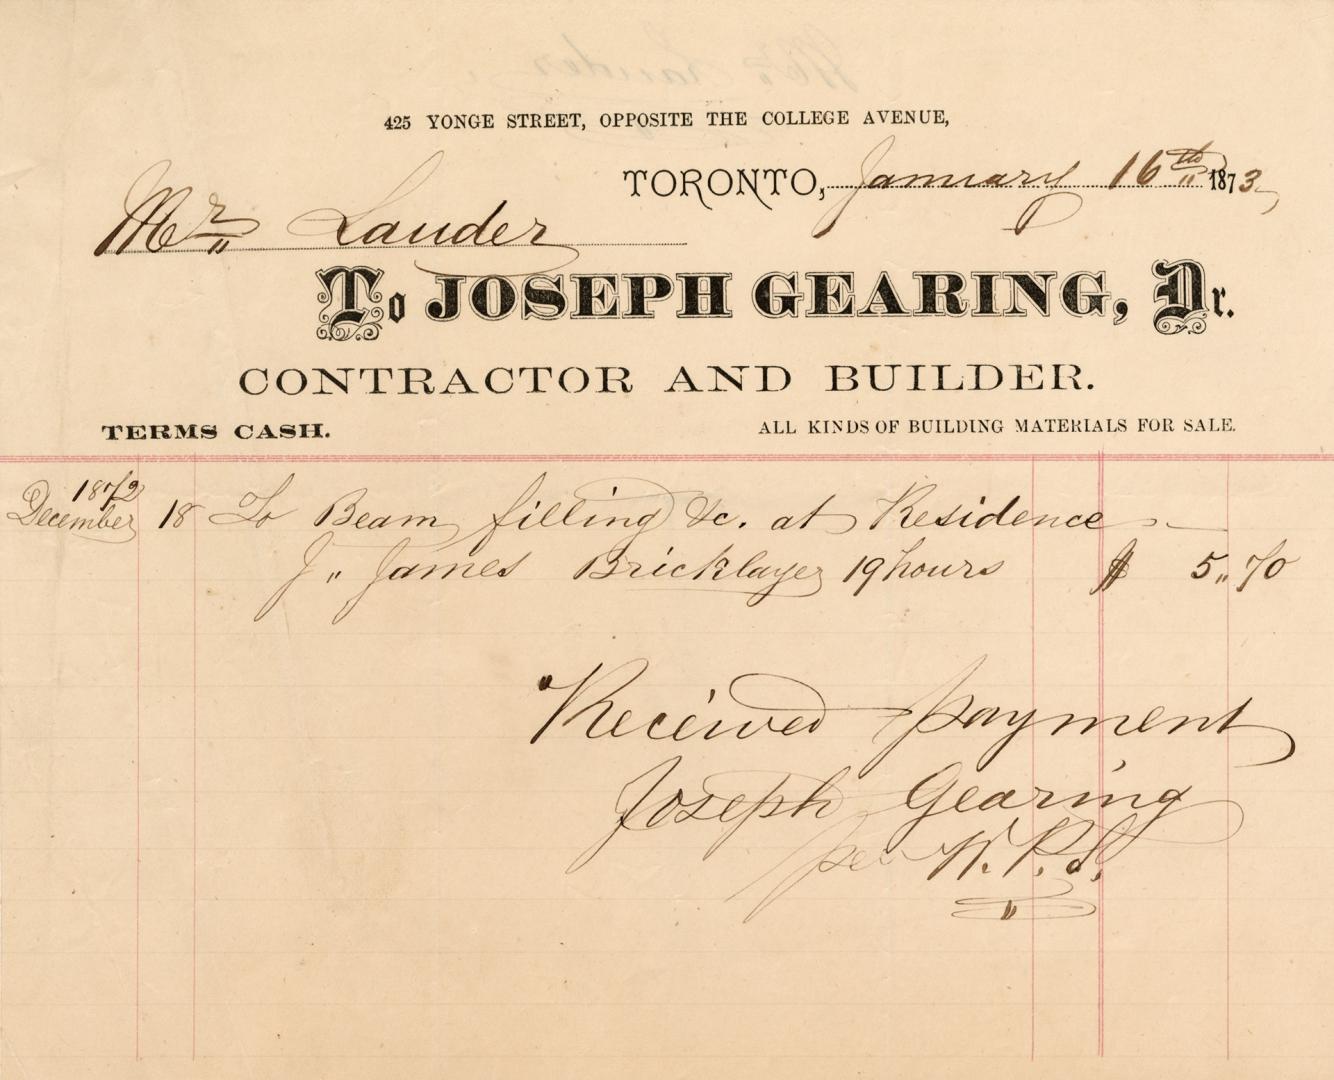 425 YONGE STREET, OPPOSITE THE COLLEGE AVENUE,
TORONTO, January 16th 1873,
Mr. Lauder
To JOSEPH GEARING, Dr.
CONTRACTOR AND BUILDER.
TERMS CASH. ALL KINDS OF BUILDING MATERIALS FOR SALE.
1872
December 18 To Beam filling &c. at Residence
J. James Bricklayer 19 hours $ 5.70
Received payment
Joseph Gearing
per W. P. S.